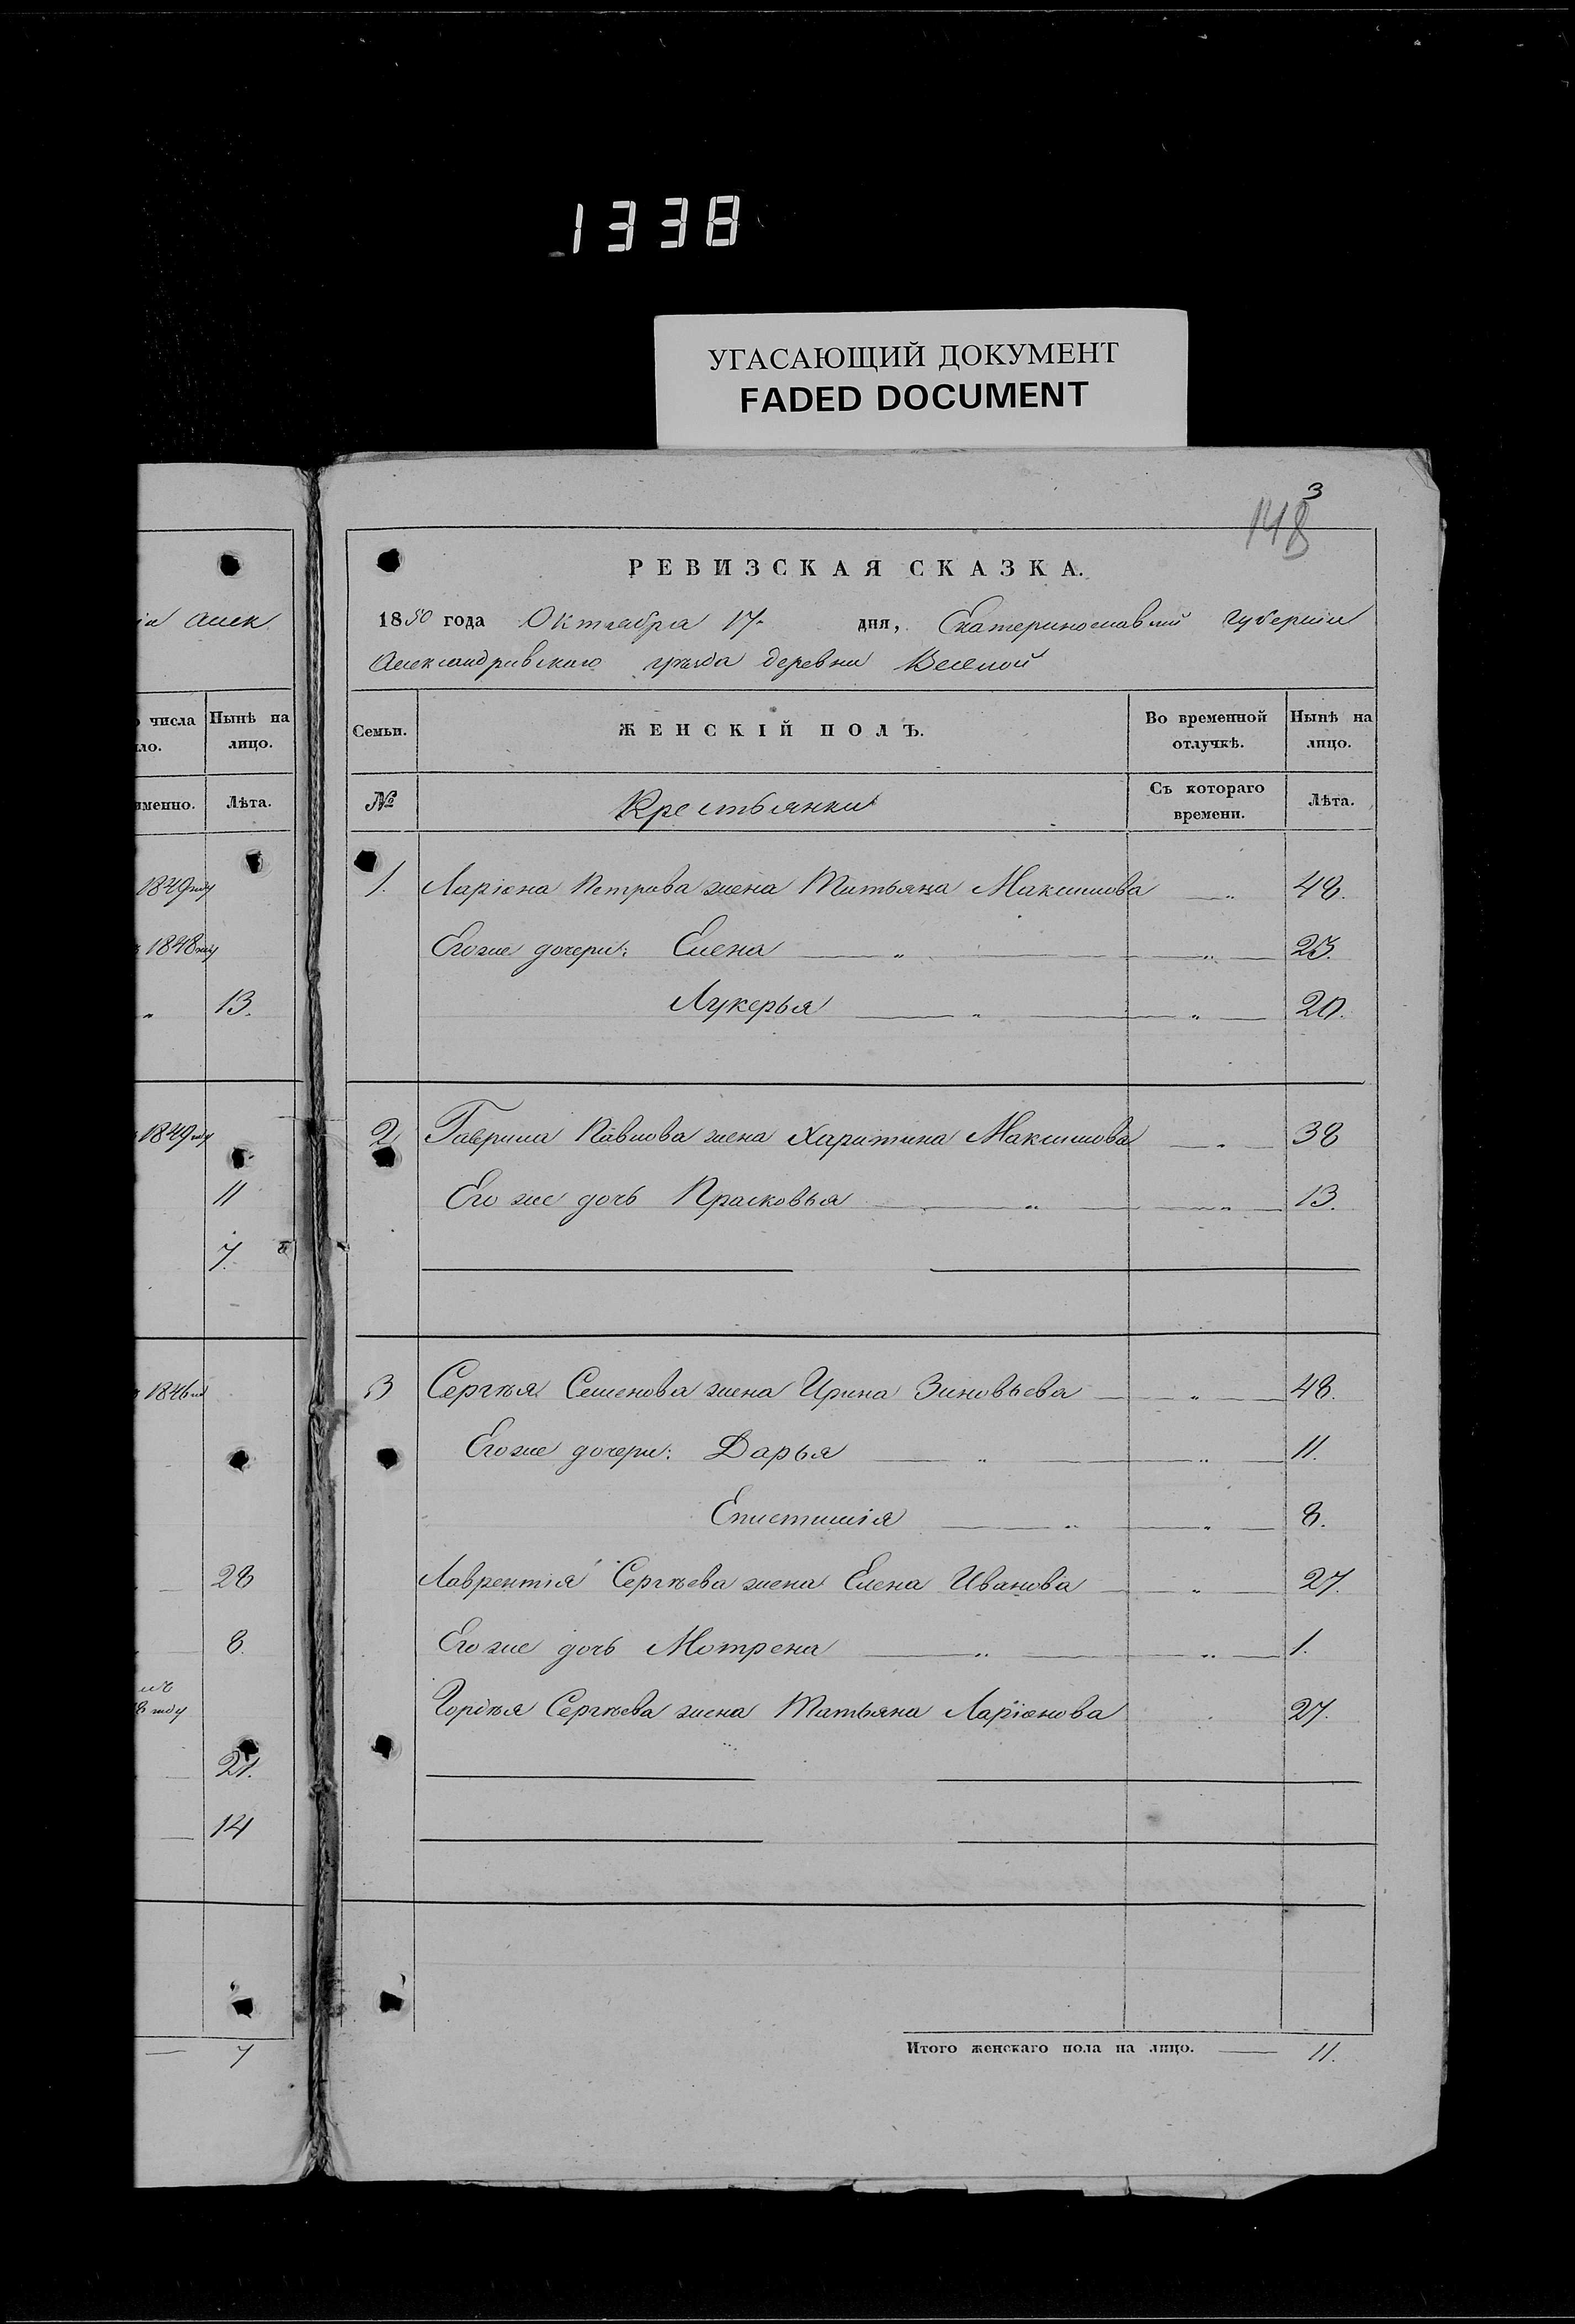 1338
УГАСАЮЩИЙ ДОКУМЕНТ
FADED DOCUMENT
3
148
РЕВИЗСКАЯ СКАЗКА.
1850 года Октября 17. дня, Екатеринославкій губерніи
Александровскаго уѣзда деревни Веселой
Семьи.
ЖЕНСКІЙ ПОЛЪ.
Во временной отлучкѣ.
Нынѣ на лицо.
№
Крестьянки
Съ котораго времени.
Лѣта.
1. Ларіона Петрова жена Татьяна Максимова „ 48.
Его же дочери: Елена „ „ 23.
Лукерья „ „ 20.
2 Гаврила Павлова жена Харитина Максимова „ 38
Его же дочь Прасковья „ „ 13.
3 Сергѣя Семенова жена Ирина Зиновьева „ 48.
Его же дочери: Дарья „ „ 11.
Епистимія „ „ 8.
Лаврентія Сергѣева жена Елена Иванова „ 27.
Его же дочь Мотрена „ „ 1.
Гордѣя Сергѣева жена Татьяна Ларіонова 27.
Итого женскаго пола на лицо. 11.
алек
числа
Нынѣ на лицо.
Лѣта.
1849 году
1848 году
„ 13.
1849 году
11
7.
1846
28
8.
21.
14
7